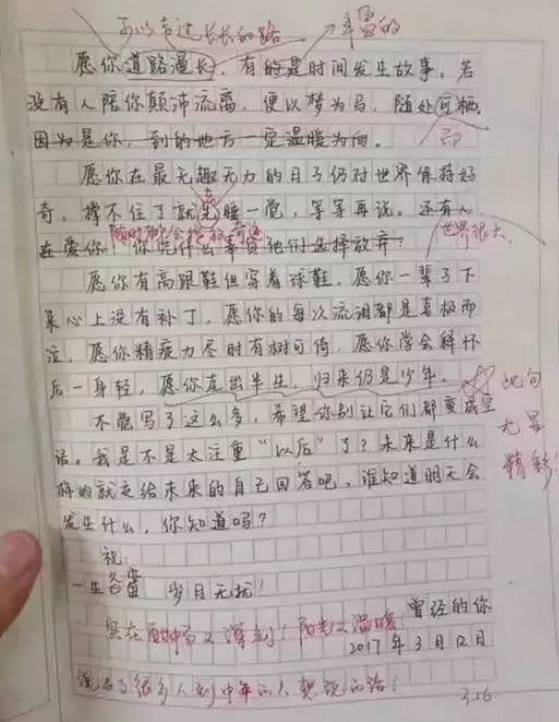 可以走过长长的路 丰富的
愿你道路漫长，有的是时间发生故事。若
没有人陪你颠沛流离，便以梦为马，随处可栖。
因为是你，到的地方一定温暖为向。
而
愿你在最无趣无力的日子仍对世界保持好
奇，撑不住了就先睡一觉，等等再说。还有人
在爱你 你凭什么辜负他们选择放弃？
世界很大
愿你有高跟鞋但穿着球鞋，愿你一辈子下
来心上没有补丁，愿你的每次流泪都是喜极而
泣，愿你精疲力尽时有树可倚，愿你学会释怀
后一身轻，愿你走出半生，归来仍是少年。
此句
尤呈
精彩！
不能写了这么多，希望你别让它们都变成空
话。我是不是太注重“以后”了？未来是什么
样的就交给未来的自己回答吧，谁知道明天会
发生什么，你知道吗？
祝：
一生 岁月无扰！
曾经的你
实在 又深刻！阳光又温暖
2017年3月12日
说出了很多人到中年的人想说的话！
3.16